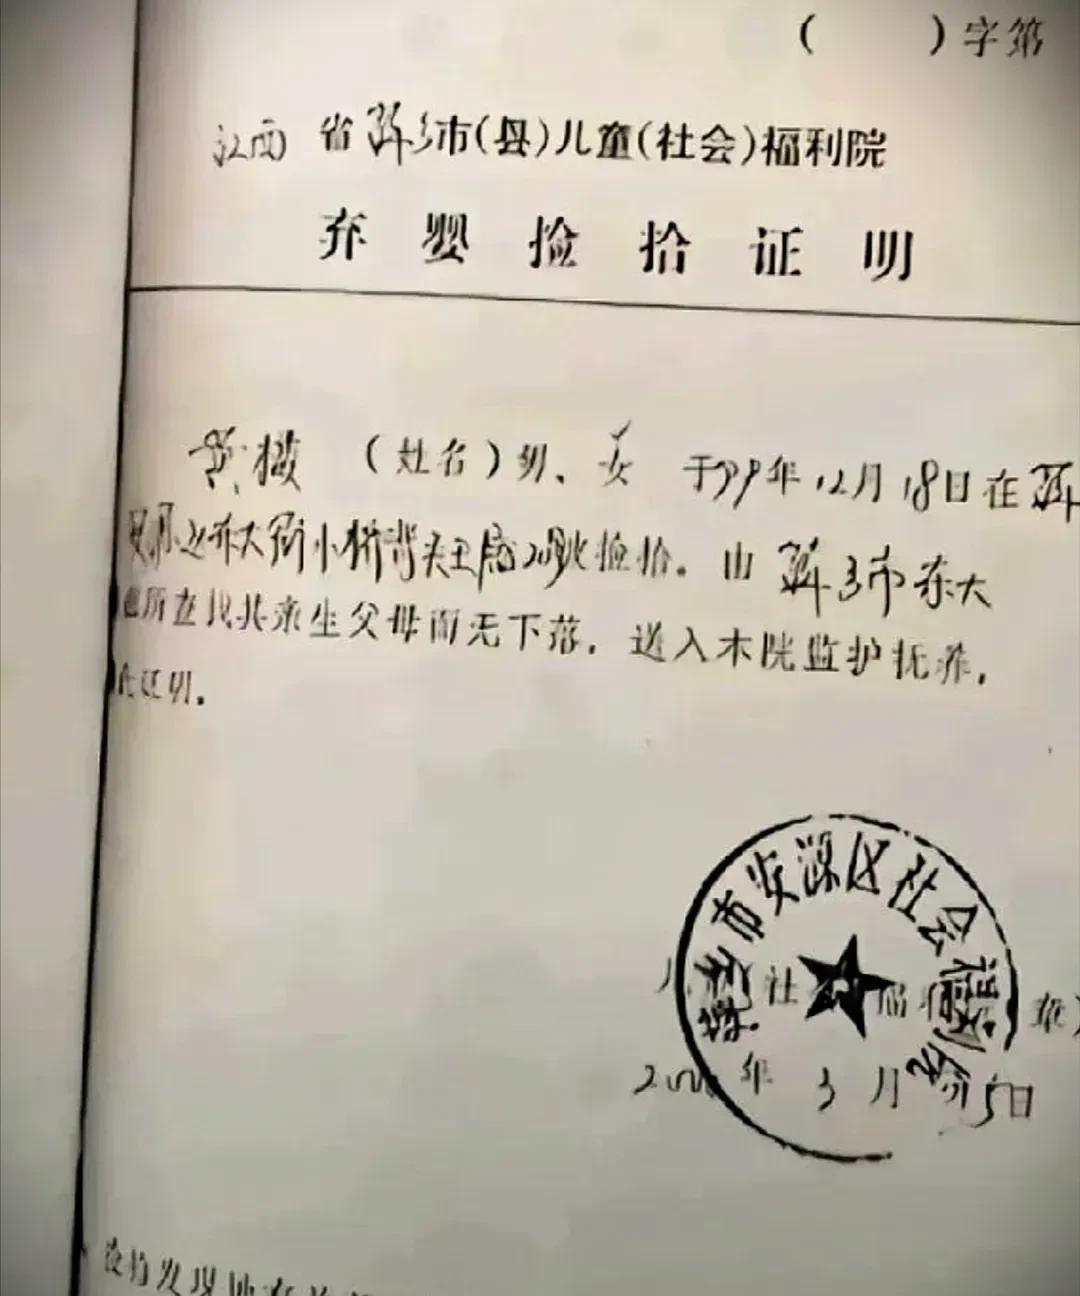 ( )字第
江西省萍乡市(县)儿童(社会)福利院
弃婴捡拾证明
黄 (姓名)男、女 于99年12月18日在萍
东大街小桥背 捡拾。由 萍乡市东大
所查找其亲生父母而无下落，送入本院监护抚养，
证明。
萍乡市安源区社会福利院
社 福 章)
2000年3月 5日
发现